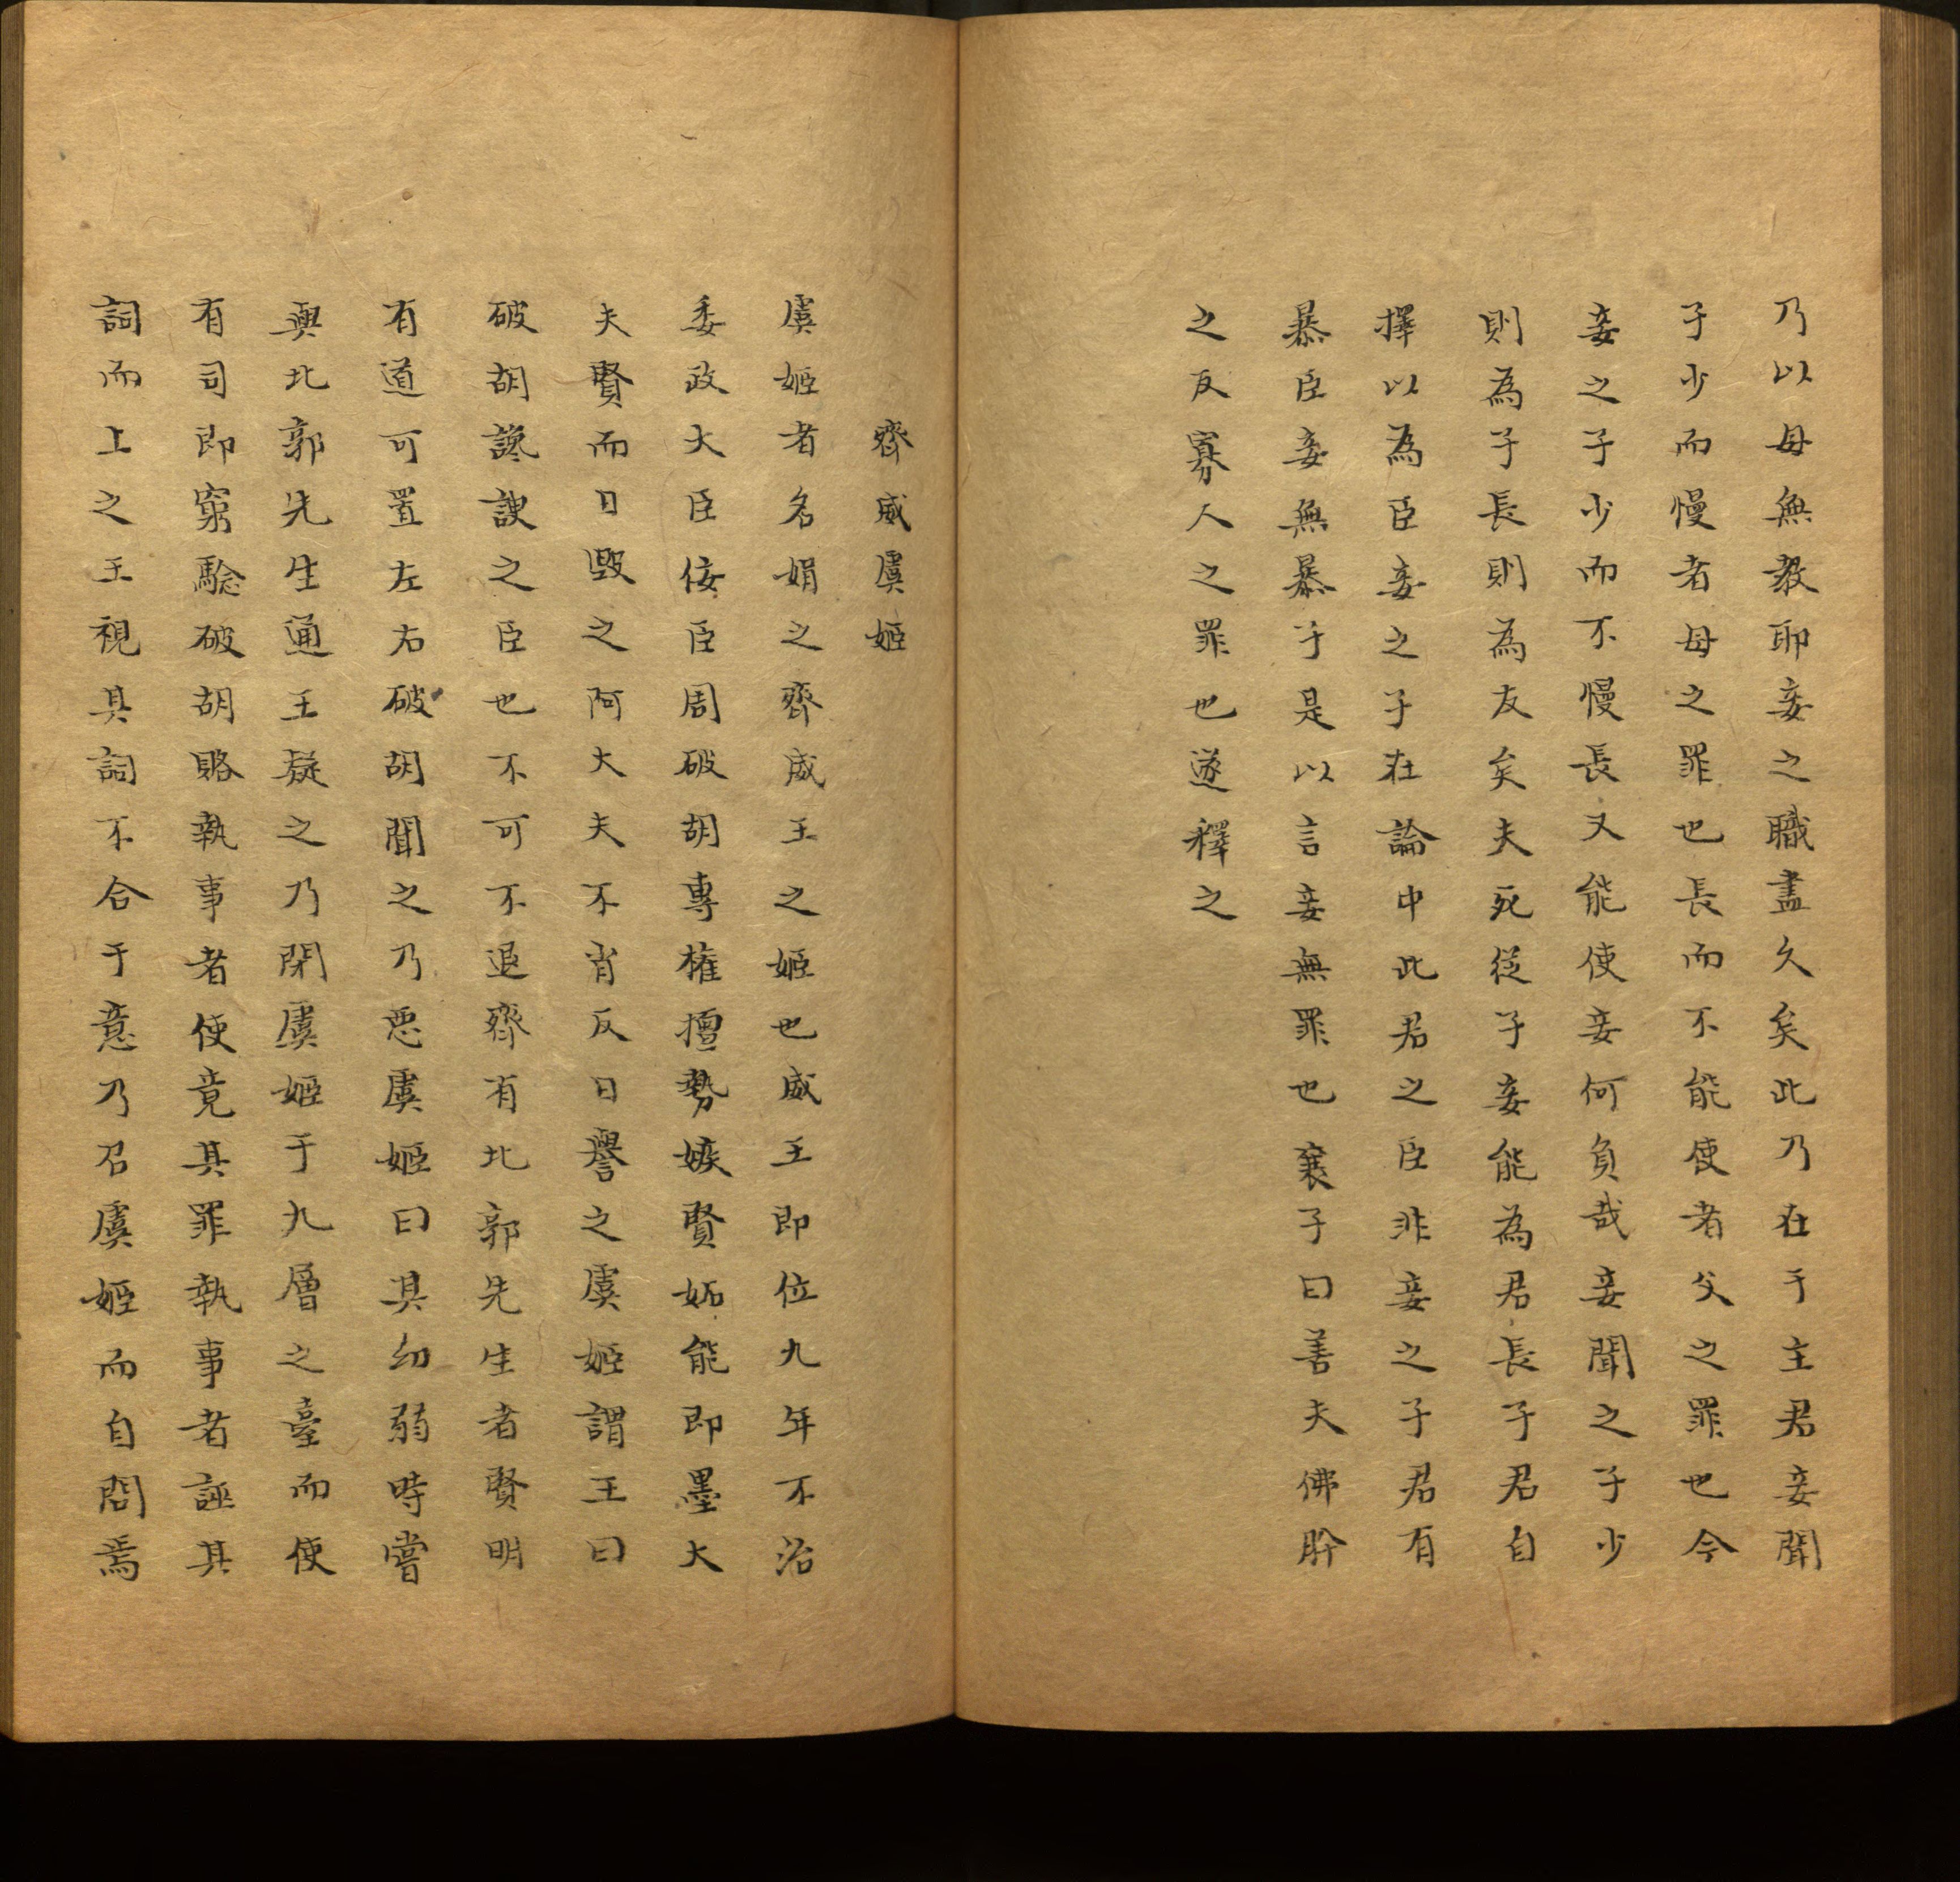 乃以母無教耶妾之職盡久矣此乃在于主君妾聞
子少而慢者母之罪也長而不能使者父之罪也今
妾之子少而不慢長又能使妾何負哉妾聞之子少
則為子長則為友矣夫死從子妾能為君長子君自
擇以為臣妾之子在論中此君之臣非妾之子君有
暴臣妾無暴子是以言妾無罪也襄子曰善夫佛肸
之反寡人之罪也遂釋之
齊威虞姬
虞姬者名娟之齊威王之姬也威王即位九年不治
委政大臣佞臣周破胡專權擅勢嫉賢妬能即墨大
夫賢而日毀之阿大夫不肖反日譽之虞姬謂王曰
破胡讒諛之臣也不可不退齊有北郭先生者賢明
有道可置左右破胡聞之乃惡虞姬曰其幼弱時嘗
與北郭先生通王疑之乃閉虞姬于九層之臺而使
有司即窮驗破胡賂執事者使竟其罪執事者誣其
詞而上之王視其詞不合于意乃召虞姬而自問焉